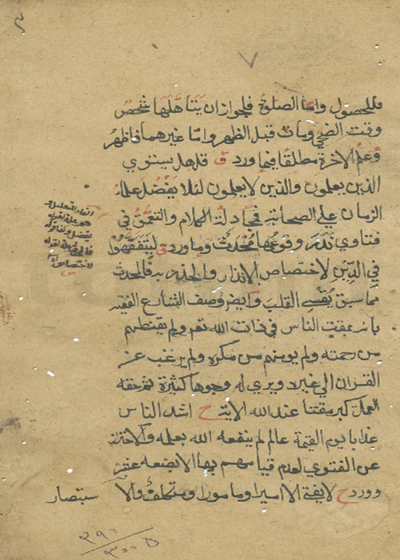 ٣
٧
فللحصول وامّا الصلوة فلجوازان يتأهّلها شخص
وقت الضحى ومات قبل الظهر وامّا غيرهما فاظهر
وعلم الاخرة مطلقا فيما ورد ق قل هل يستوي
الذين يعلمون والذين لا يعلمون لئلا يفضل علماء
الزمان على الصحابة في مجادلة الكلام والتعمق في
فتاوي ندر وقوعها محدث وما ورد ق ليتفقهوا
في الدّين لاختصاص الانذار والحذر به فالحدث
مما سبق يقسي القلب وايضا وصف الشارع الفقيه
بانه يمقت الناس في ذات الله تعم ولم يقنطهم
من رحمته ولم يومنهم من مكره ولم يرغب عن
القران الى غيره ويرى له وجوها كثيرة
العمل كبر مقتا عند الله الاية ح اشد الناس
عذابا يوم القيمة عالم لم ينفعه الله بعلمه والاحتراز
عن الفتوي لعدم قيامهم بها الا بضعة عشر
وورد ح لا يفتي الا امير او مامور او متكلف والا
ستبصار
٣٩٠
٣٠٠٥